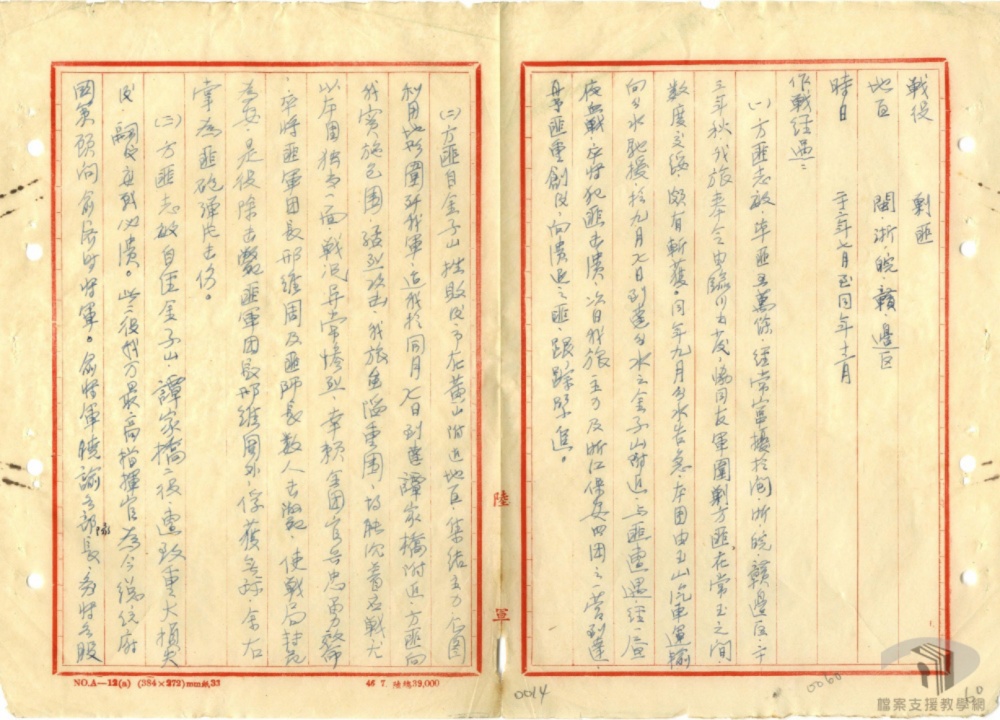 戰役　剿匪
地區　閩、浙、皖、贛、邊區
時日　二十三年七月至同年十二月
作戰經過：
(一)方匪志敏、率匪五萬餘、經常山竄擾於閩、浙、皖、贛邊區、二十
三年秋我旅奉令由臨川出發、協同友軍圍剿方匪在常玉之間、
數度交綏、頗有斬獲。同年九月分水告急、本團由玉山汽車運輸
向分水馳援於九月七日到達分水之金子山附近、與匪遭遇、經一晝
夜血戰卒將犯匪擊潰、次日我旅主力及浙江保安四團之一營到達、
匪重創後、向潰退之匪、跟踪緊追。
(二)方匪自金子山挫敗後、乃在黃山附近地區、集結主力企圖
利用地形圍殲我軍、迨我於同月七日到達譚家橋附近、方匪向
我實施包圍、猛烈攻擊、我旅重圍、沉著應戰尤
以本團獨當一面、戰況異常慘烈、幸賴全團官兵忠勇效命
卒將匪軍團長邢維周及匪師長數人擊斃、使戰局轉危
為安、是役除擊斃匪軍團長邢維周外、俘獲無餘、余右
掌為匪砲彈片擊傷。
(三)方匪志敏自經金子山、譚家橋二役、遭致重大損失
後、即潰。此二役我方最高指揮官為今總統府
國策顧問俞濟時將軍。俞將軍曉諭各部長、多將各股
陸
軍
NO.A—12(a) (384×272)mm紙33
46 7. 39,000
0014
0060
60
檔案支援教學網